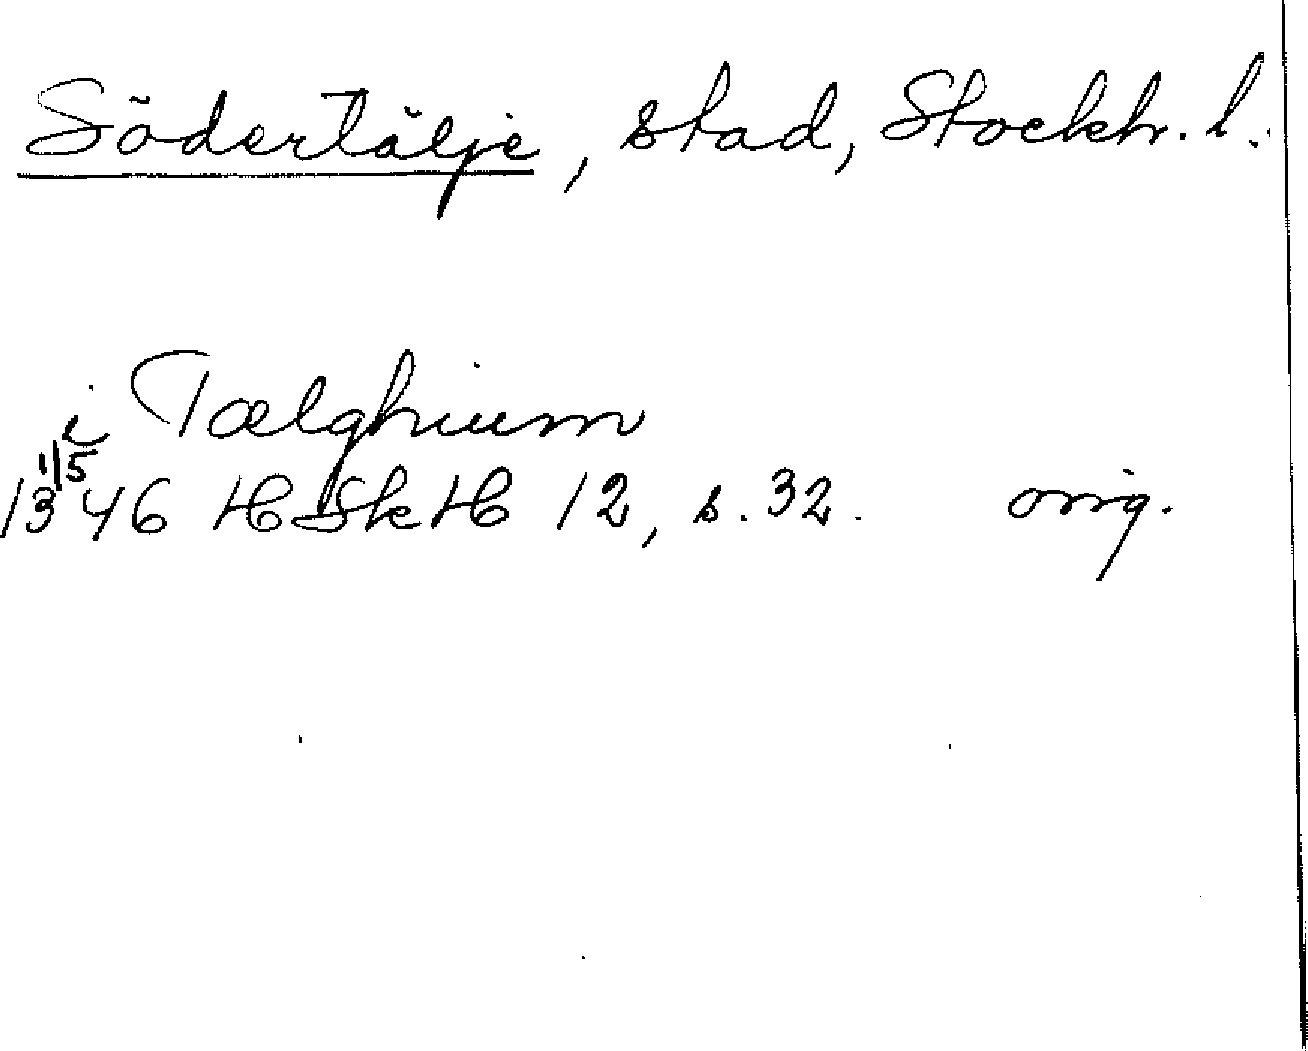 Södertälje, stad, Stockh. l.
i Tælghium
1346 1/5 HSkH 12, s. 32. orig.